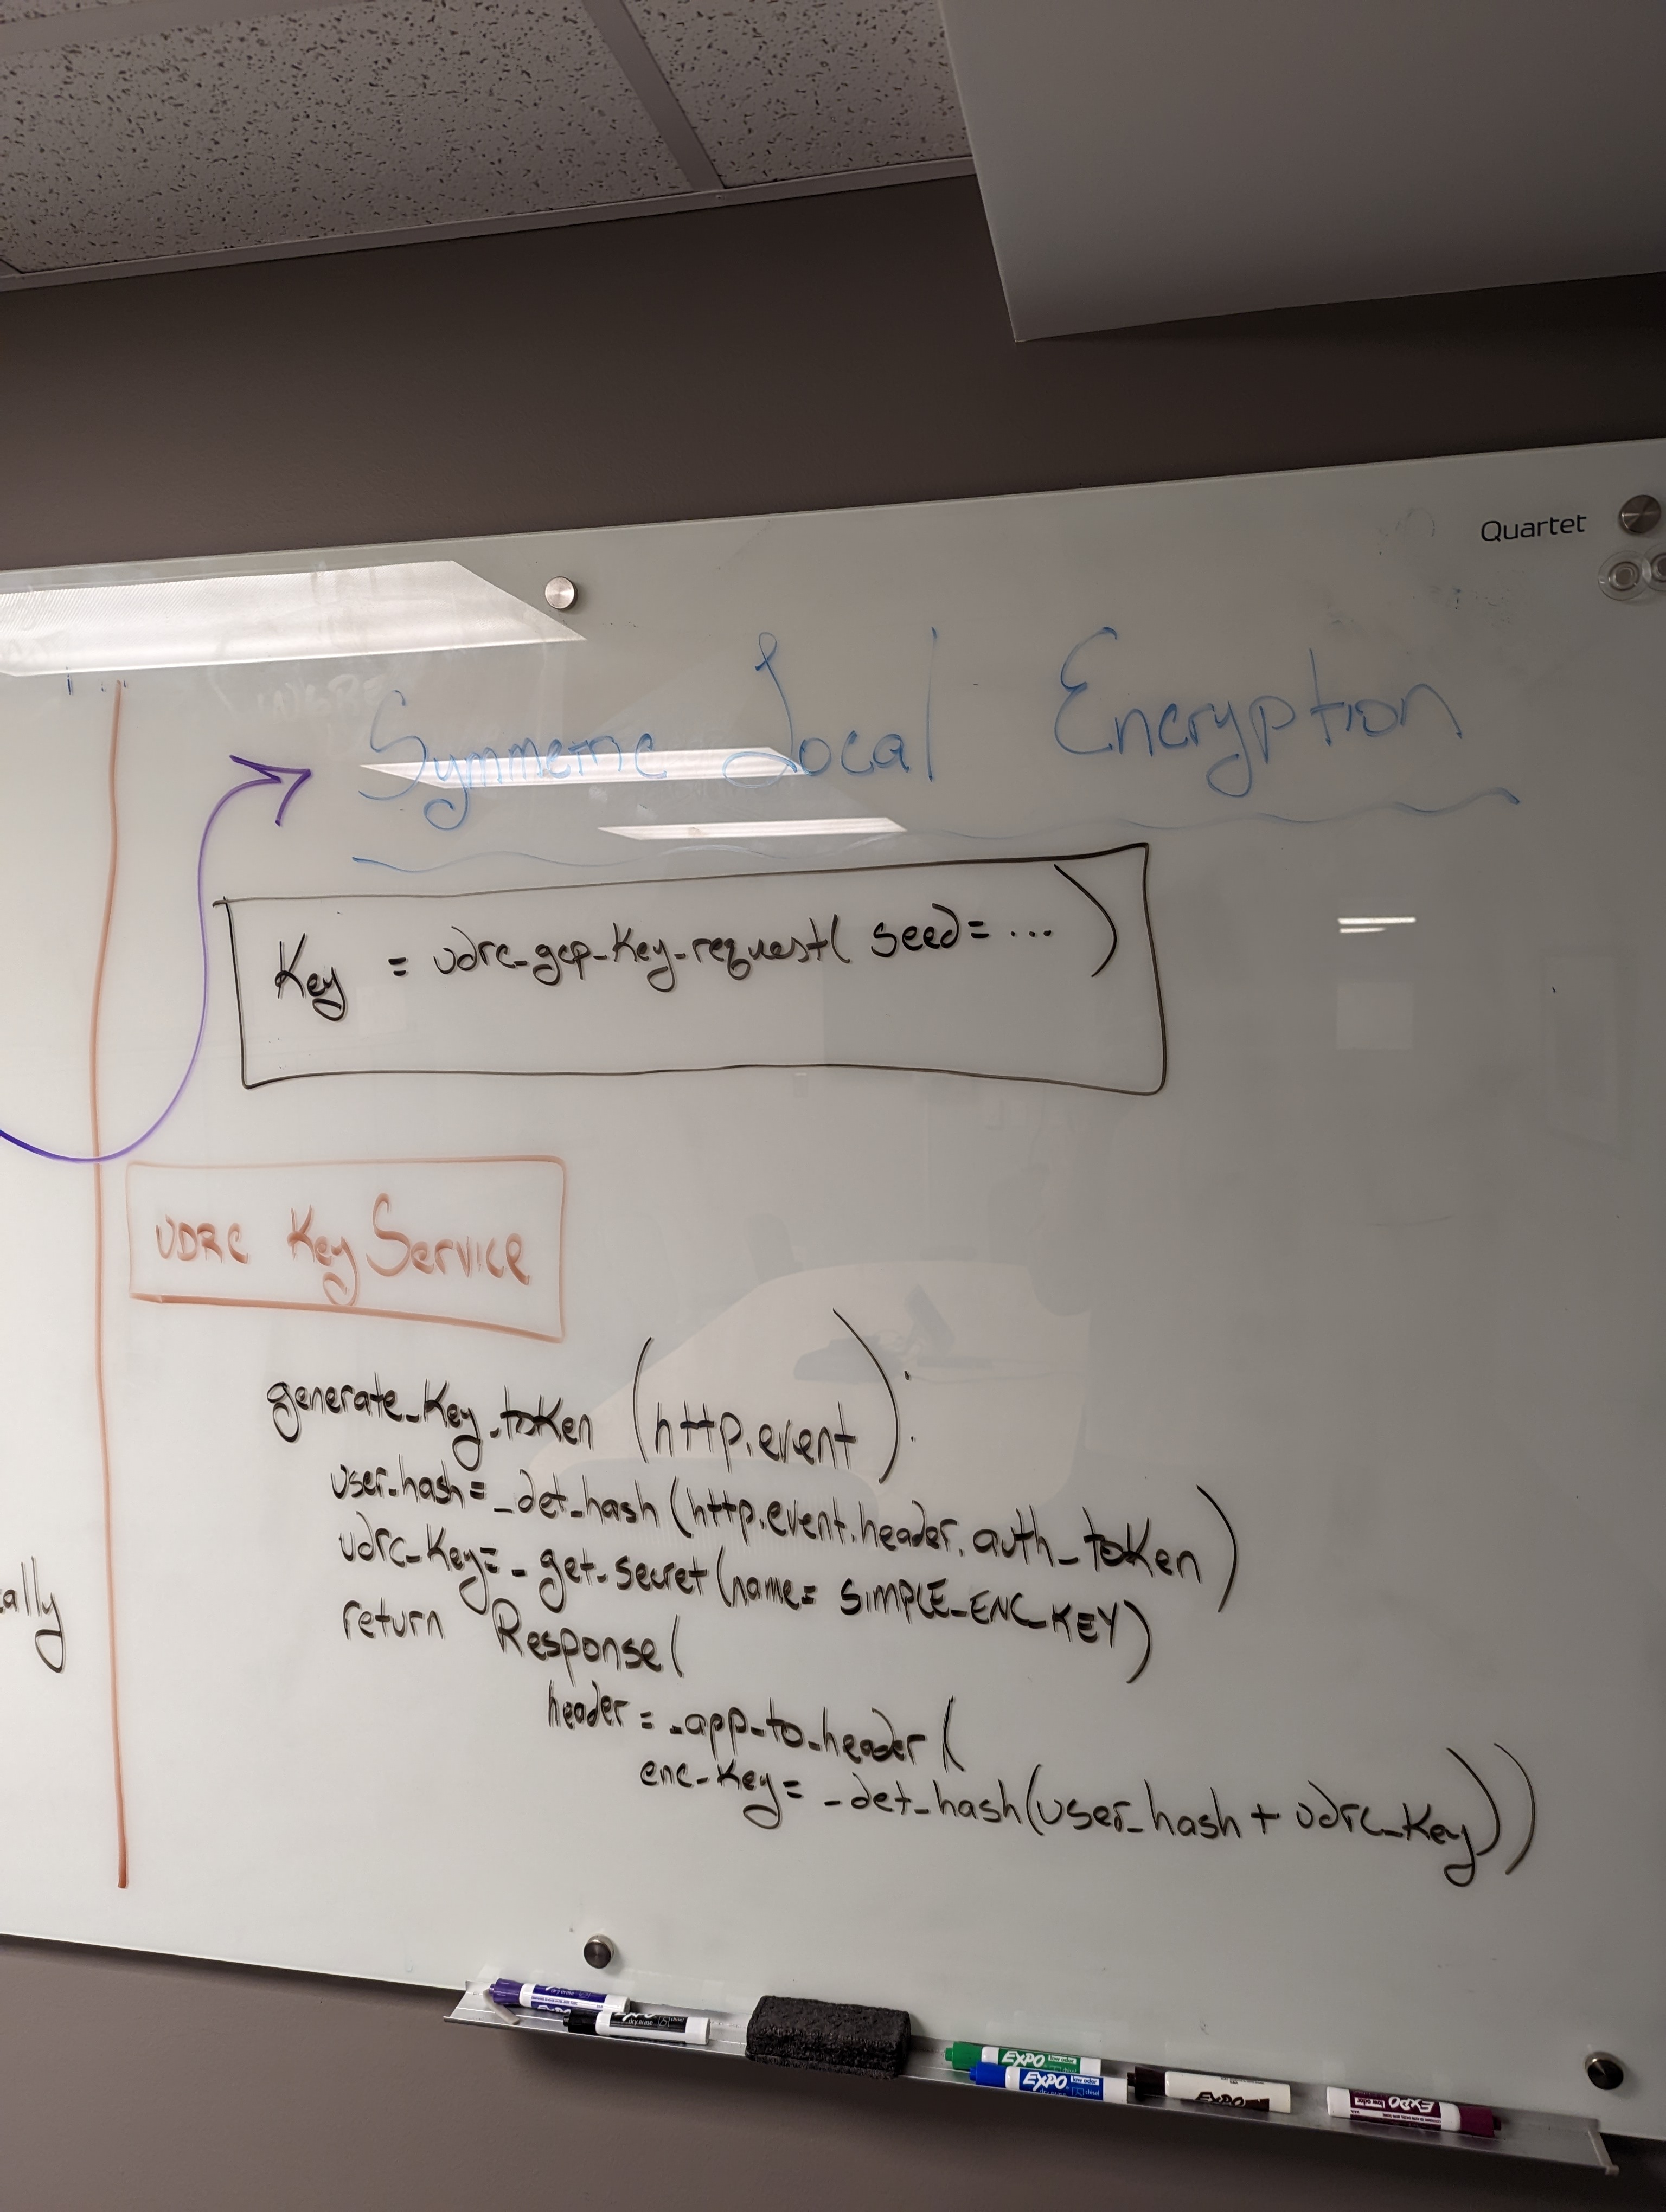 Quartet
Symmetric Local Encryption
Key = udrc_gcp_key_request( seed= ... )
UDRC Key Service
generate_key_token (http.event):
user_hash = _det_hash (http.event.header.auth_token)
udrc_key = _get_secret (name= SIMPLE_ENC_KEY)
return Response(
header = _app_to_header (
enc_key = _det_hash(user_hash + udrc_key))
ally
EXPO
dry erase
EXPO
EXPO
EXPO
EXPO